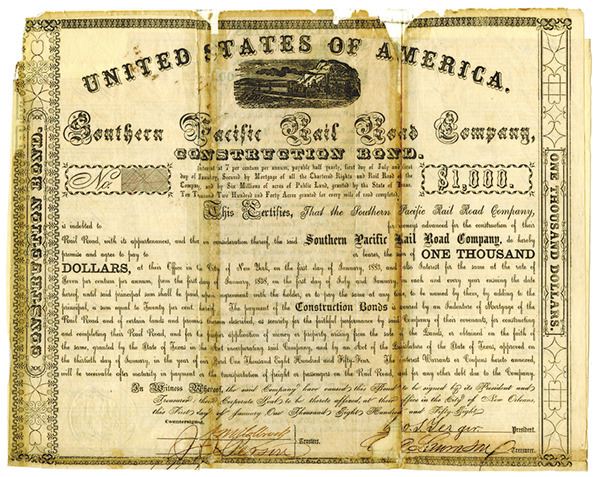 UNITED STATES OF AMERICA.
Southern Pacific Rail Road Company,
CONSTRUCTION BOND.
Interest at 7 per centum per annum, payable half yearly, first day of July and first
day of January, Secured by Mortgage of all the Chartered Rights and Rail Road of the
Company, and by Six Millions of acres of Public Land, granted by the State of Texas.
Ten Thousand Two Hundred and Forty Acres granted for every mile of road completed.
No.
$1,000.
This Certifies, That the Southern Pacific Rail Road Company,
is indebted to for moneys advanced for the construction of their
Rail Road, with its appurtenances, and that in consideration thereof, the said Southern Pacific Rail Road Company, do hereby
promise and agree to pay to or bearer, the sum of ONE THOUSAND
DOLLARS, at their Office in the City of New York, on the first day of January, 1883, and also Interest for the same at the rate of
Seven per centum per annum, from the first day of January, 1858, on the first day of July and January, in each and every year ensuing the date
hereof, until said principal sum shall be paid, upon agreement with the holder, or to pay the same at any time, to be waived by them, by adding to the
principal, a sum equal to Twenty per cent. thereon. The payment of the Construction Bonds is secured by an Indenture of Mortgage of the
Rail Road and of certain lands and property therein described, as security for the faithful performance by the said Company of their covenants, for constructing
and completing their Rail Road, and for the proper application of the property arising from the sale of the Lands, obtained on the faith of
the same, granted by the State of Texas in the Charter incorporating said Company, and by an Act of the Legislature of the State of Texas, approved on
the thirtieth day of January, in the year of our Lord One Thousand Eight Hundred and Fifty-Four. The Interest Warrants or Coupons hereto annexed,
will be receivable after maturity in payment for the transportation of freight or passengers on the Rail Road, or for any other debt due to the Company.
In Witness Whereof, the said Company have caused this Bond to be signed by its President and
Treasurer and the Corporate Seal to be thereto affixed, at their office in the City of New Orleans,
this First day of January One Thousand Eight Hundred and Fifty Eight.
Countersigned,
Trustees.
President.
Treasurer.
CONSTRUCTION BOND.
ONE THOUSAND DOLLARS.